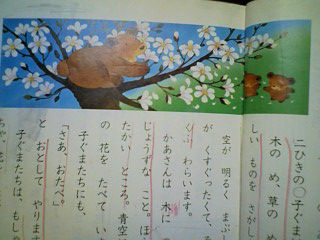 二ひきの〇子ぐま
木のめ、草のめ
しいものをさがし
空が明るくまぶし
がくすぐったくて、
くふわらいます。
かあさんは木に
じょうずなこと。ほ
たかいところ。青空
の花をたべてい
「さあ、おたべ。」
子ぐまたちにも、
とおとしてやります
子ぐまたちは、もしゃ